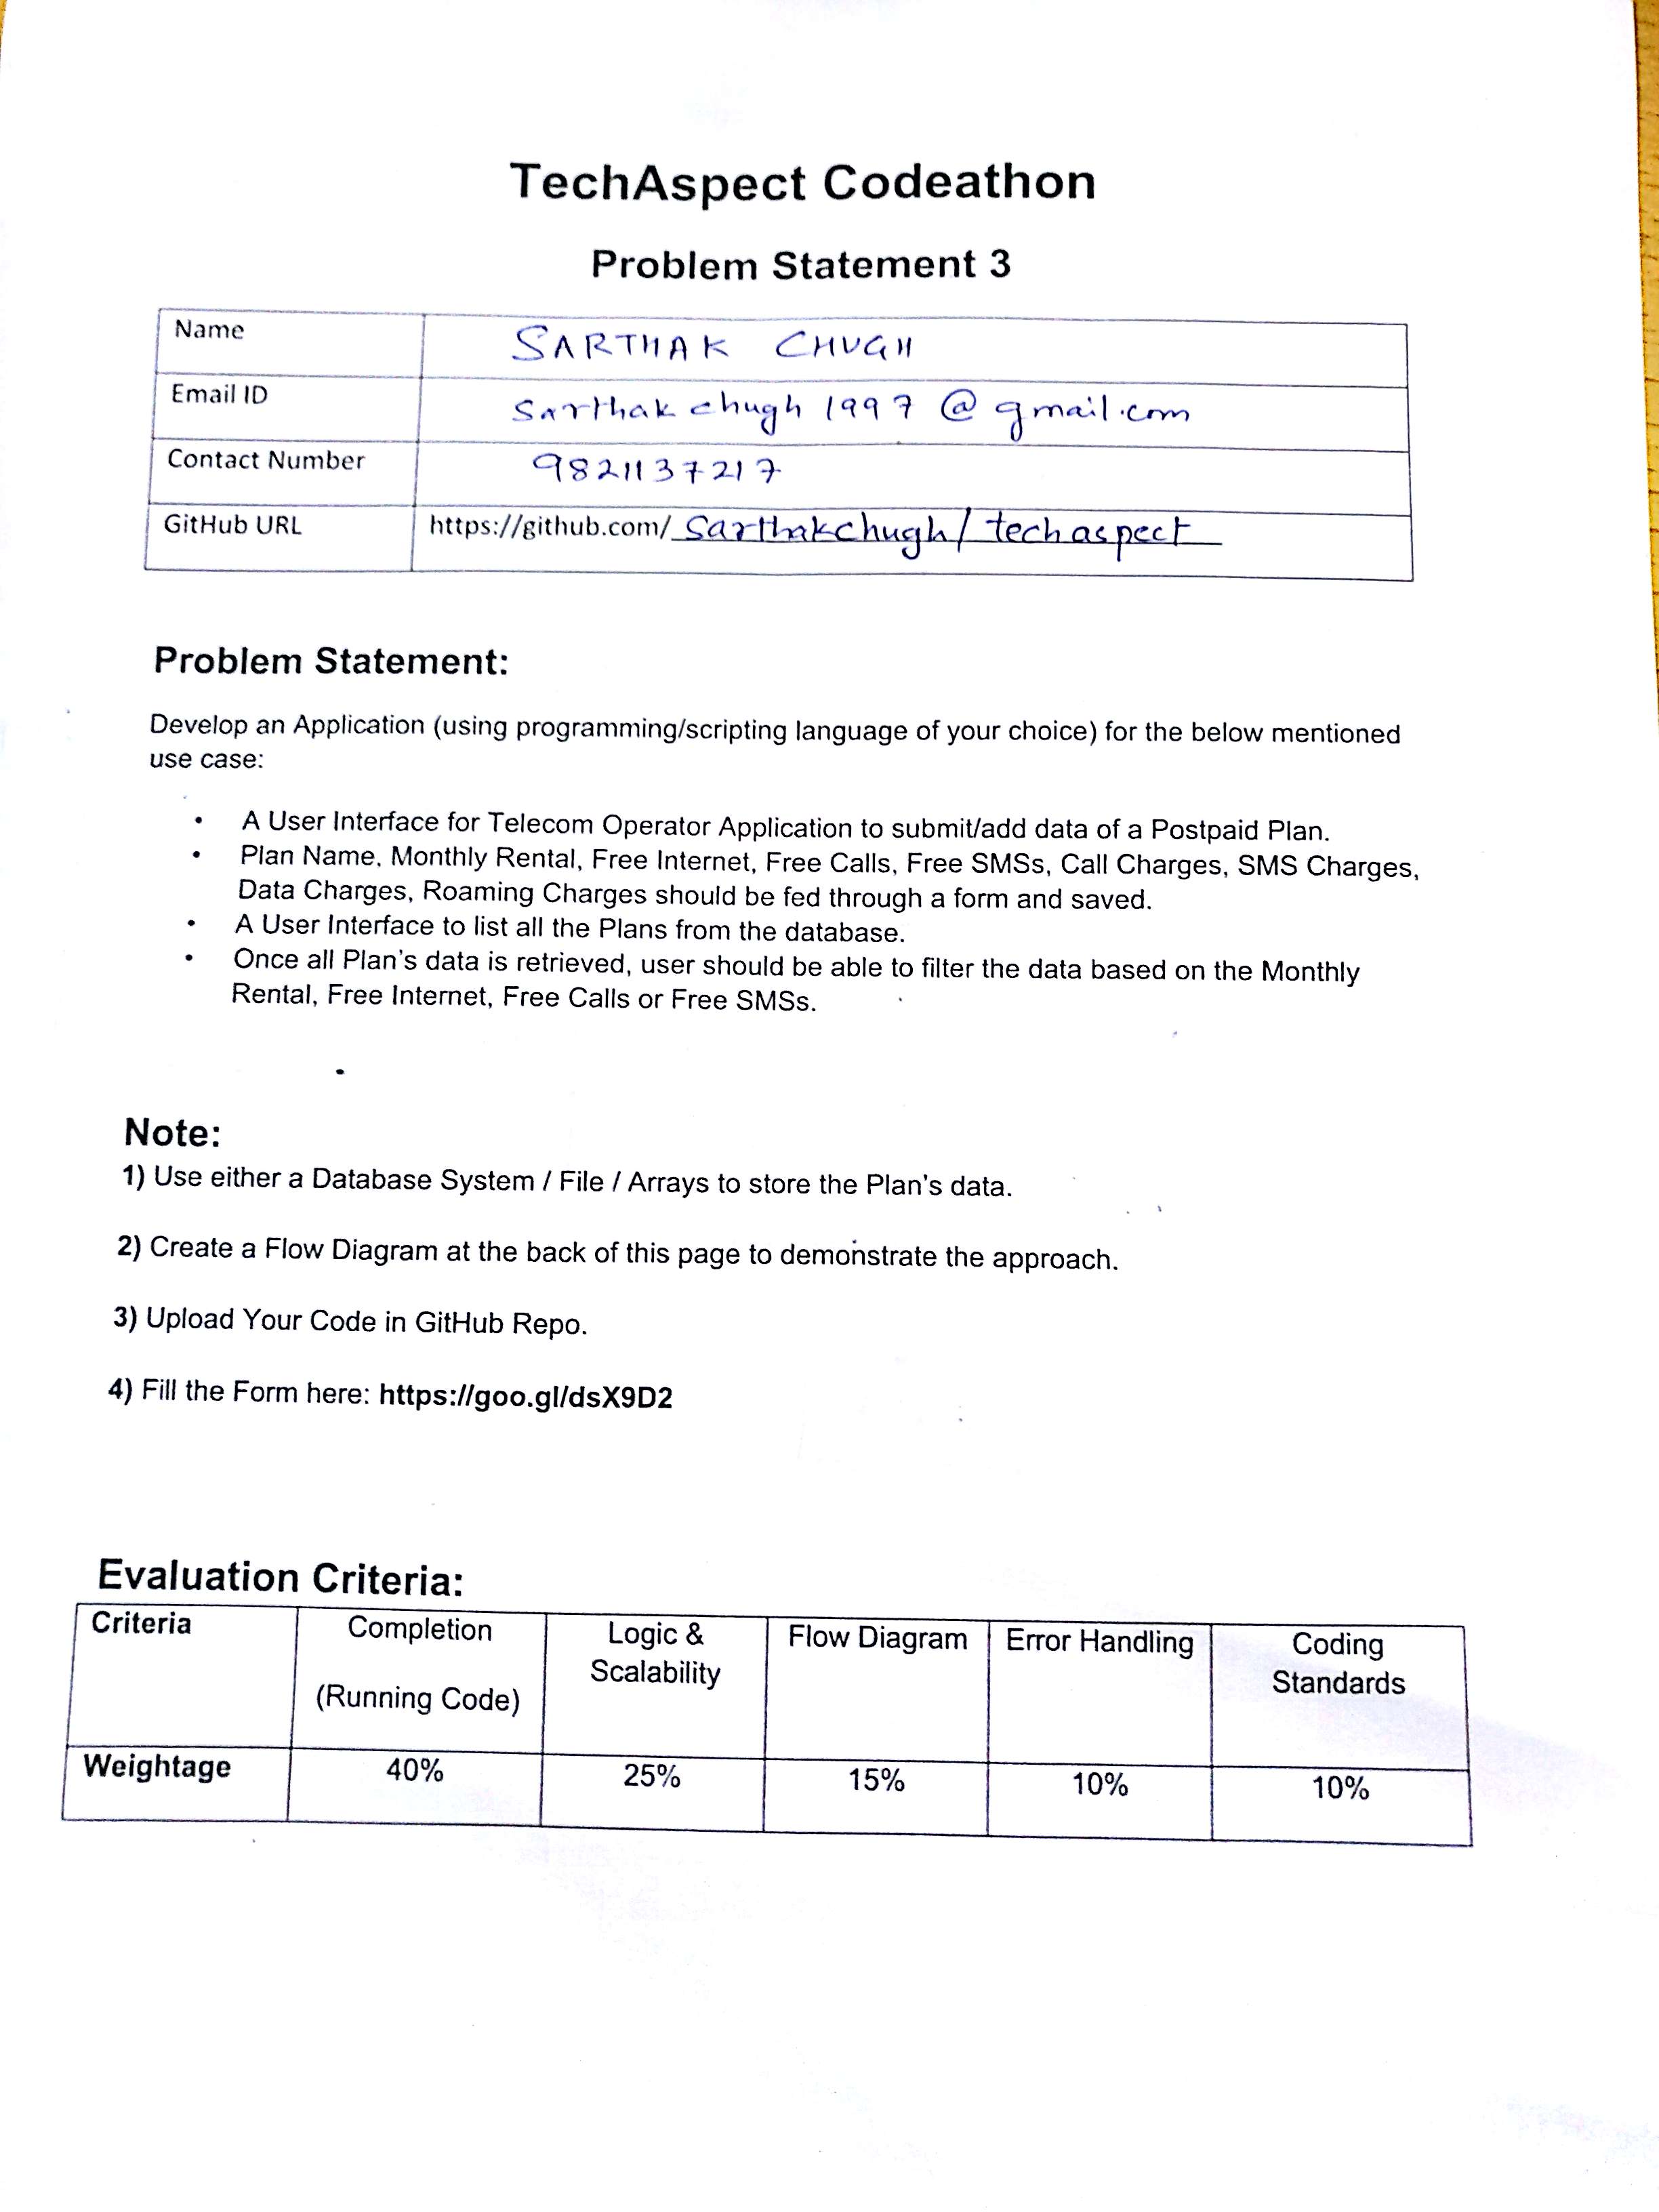 TechAspect Codeathon
Problem Statement 3
Name SARTHAK CHUGH
Email ID sarthakchugh1997@gmail.com
Contact Number 9821137217
GitHub URL https://github.com/ sarthakchugh/techaspect
Problem Statement:
Develop an Application (using programming/scripting language of your choice) for the below mentioned
use case:
• A User Interface for Telecom Operator Application to submit/add data of a Postpaid Plan.
• Plan Name, Monthly Rental, Free Internet, Free Calls, Free SMSs, Call Charges, SMS Charges,
Data Charges, Roaming Charges should be fed through a form and saved.
• A User Interface to list all the Plans from the database.
• Once all Plan's data is retrieved, user should be able to filter the data based on the Monthly
Rental, Free Internet, Free Calls or Free SMSs.
Note:
1) Use either a Database System / File / Arrays to store the Plan's data.
2) Create a Flow Diagram at the back of this page to demonstrate the approach.
3) Upload Your Code in GitHub Repo.
4) Fill the Form here: https://goo.gl/dsX9D2
Evaluation Criteria:
Criteria Completion Logic & Flow Diagram Error Handling Coding
Scalability Standards
(Running Code)
Weightage 40% 25% 15% 10% 10%